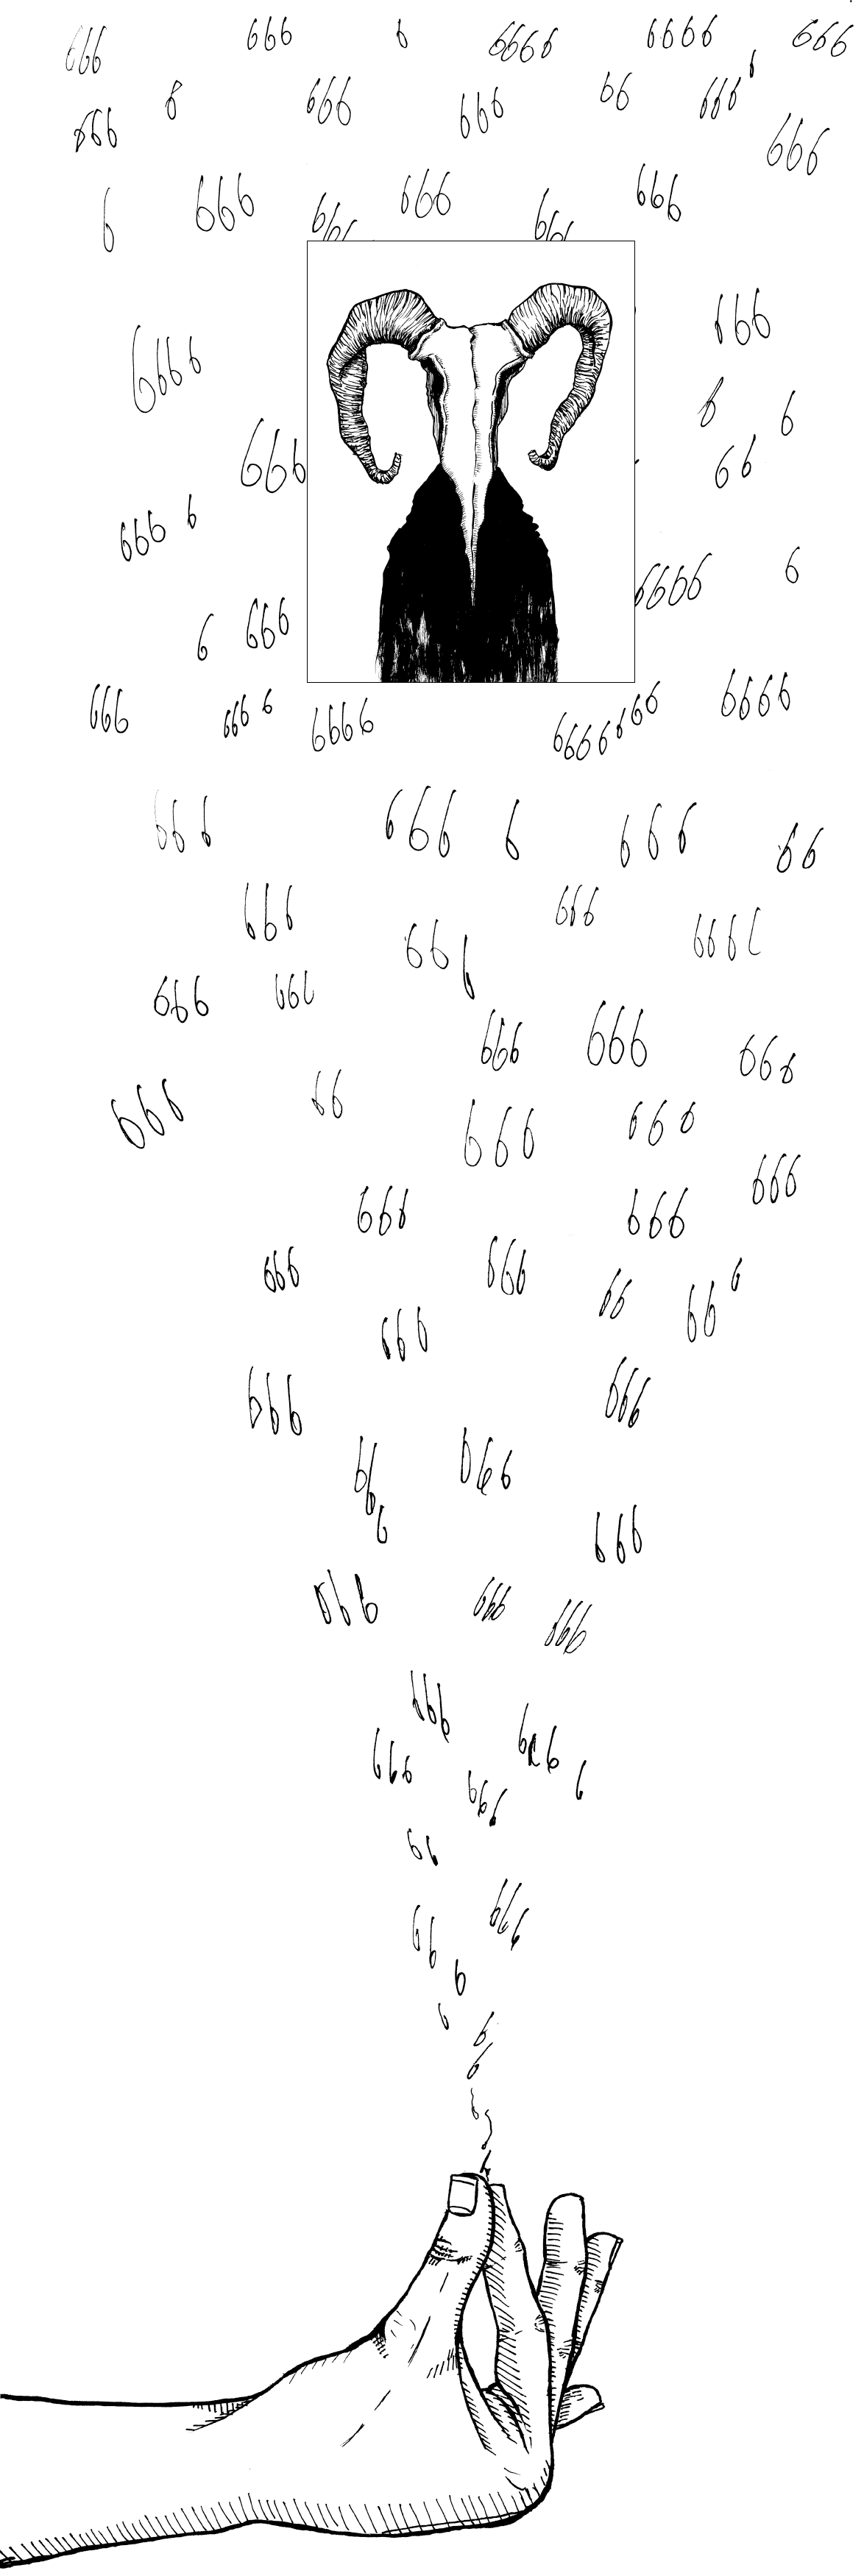 666 666 6 6666 6666 666
666 6 666 666 66 666 6 666
6 666 666 666 666 666
6666 666
666 6 6 66
666 6 6666 6
6 666
666 666 6 6666 6666666 6666
666 666 6 666 66
666 666 666
66 6
666 666 666 666 666
666 66 666 666
666 666 666
666 666 66 66 6
666
666 666
66 666
6
666
666 666 666
666
666 6 6 6
666
66
66 666
6
6
6
6